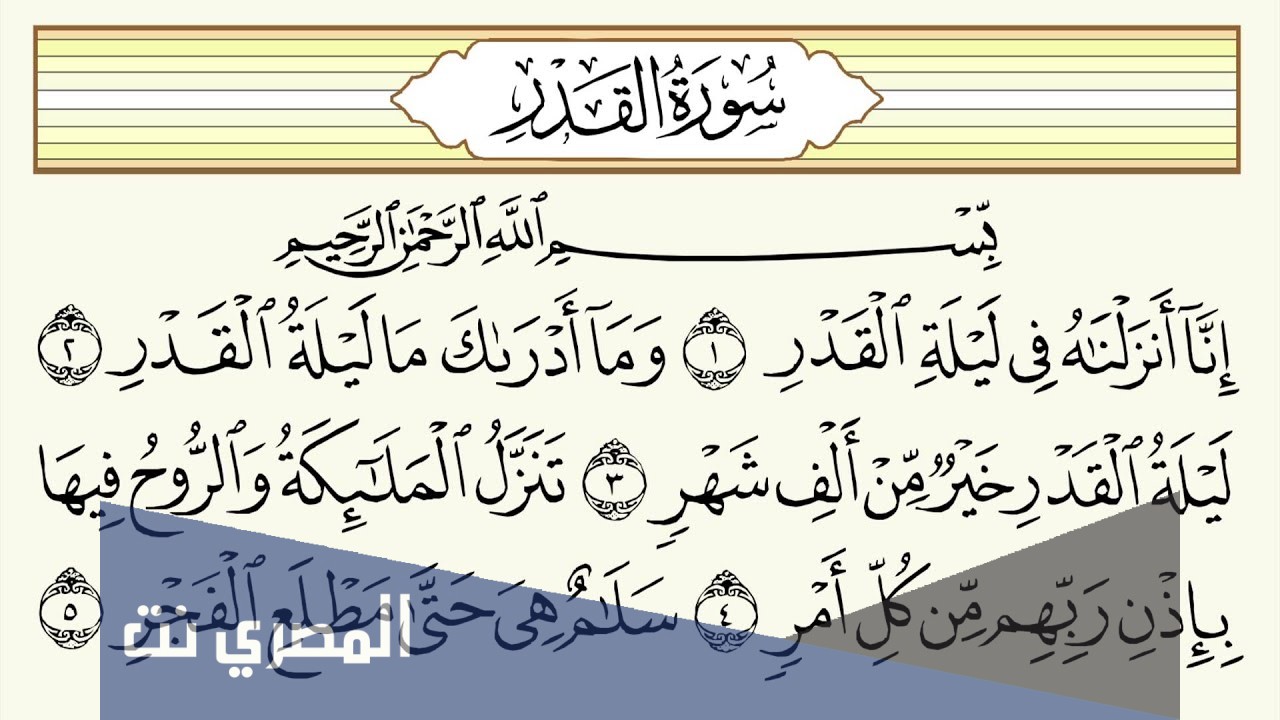 سُورَةُ القَدْرِ
بِّسْمِ ٱللَّهِ ٱلرَّحْمَٰنِ ٱلرَّحِيمِ
إِنَّآ أَنزَلْنَٰهُ فِى لَيْلَةِ ٱلْقَدْرِ ١ وَمَآ أَدْرَىٰكَ مَا لَيْلَةُ ٱلْقَدْرِ ٢
لَيْلَةُ ٱلْقَدْرِ خَيْرٌ مِّنْ أَلْفِ شَهْرٍ ٣ تَنَزَّلُ ٱلْمَلَٰٓئِكَةُ وَٱلرُّوحُ فِيهَا
بِإِذْنِ رَبِّهِم مِّن كُلِّ أَمْرٍ ٤ سَلَٰمٌ هِىَ حَتَّىٰ مَطْلَعِ ٱلْفَجْرِ ٥
المصري نت